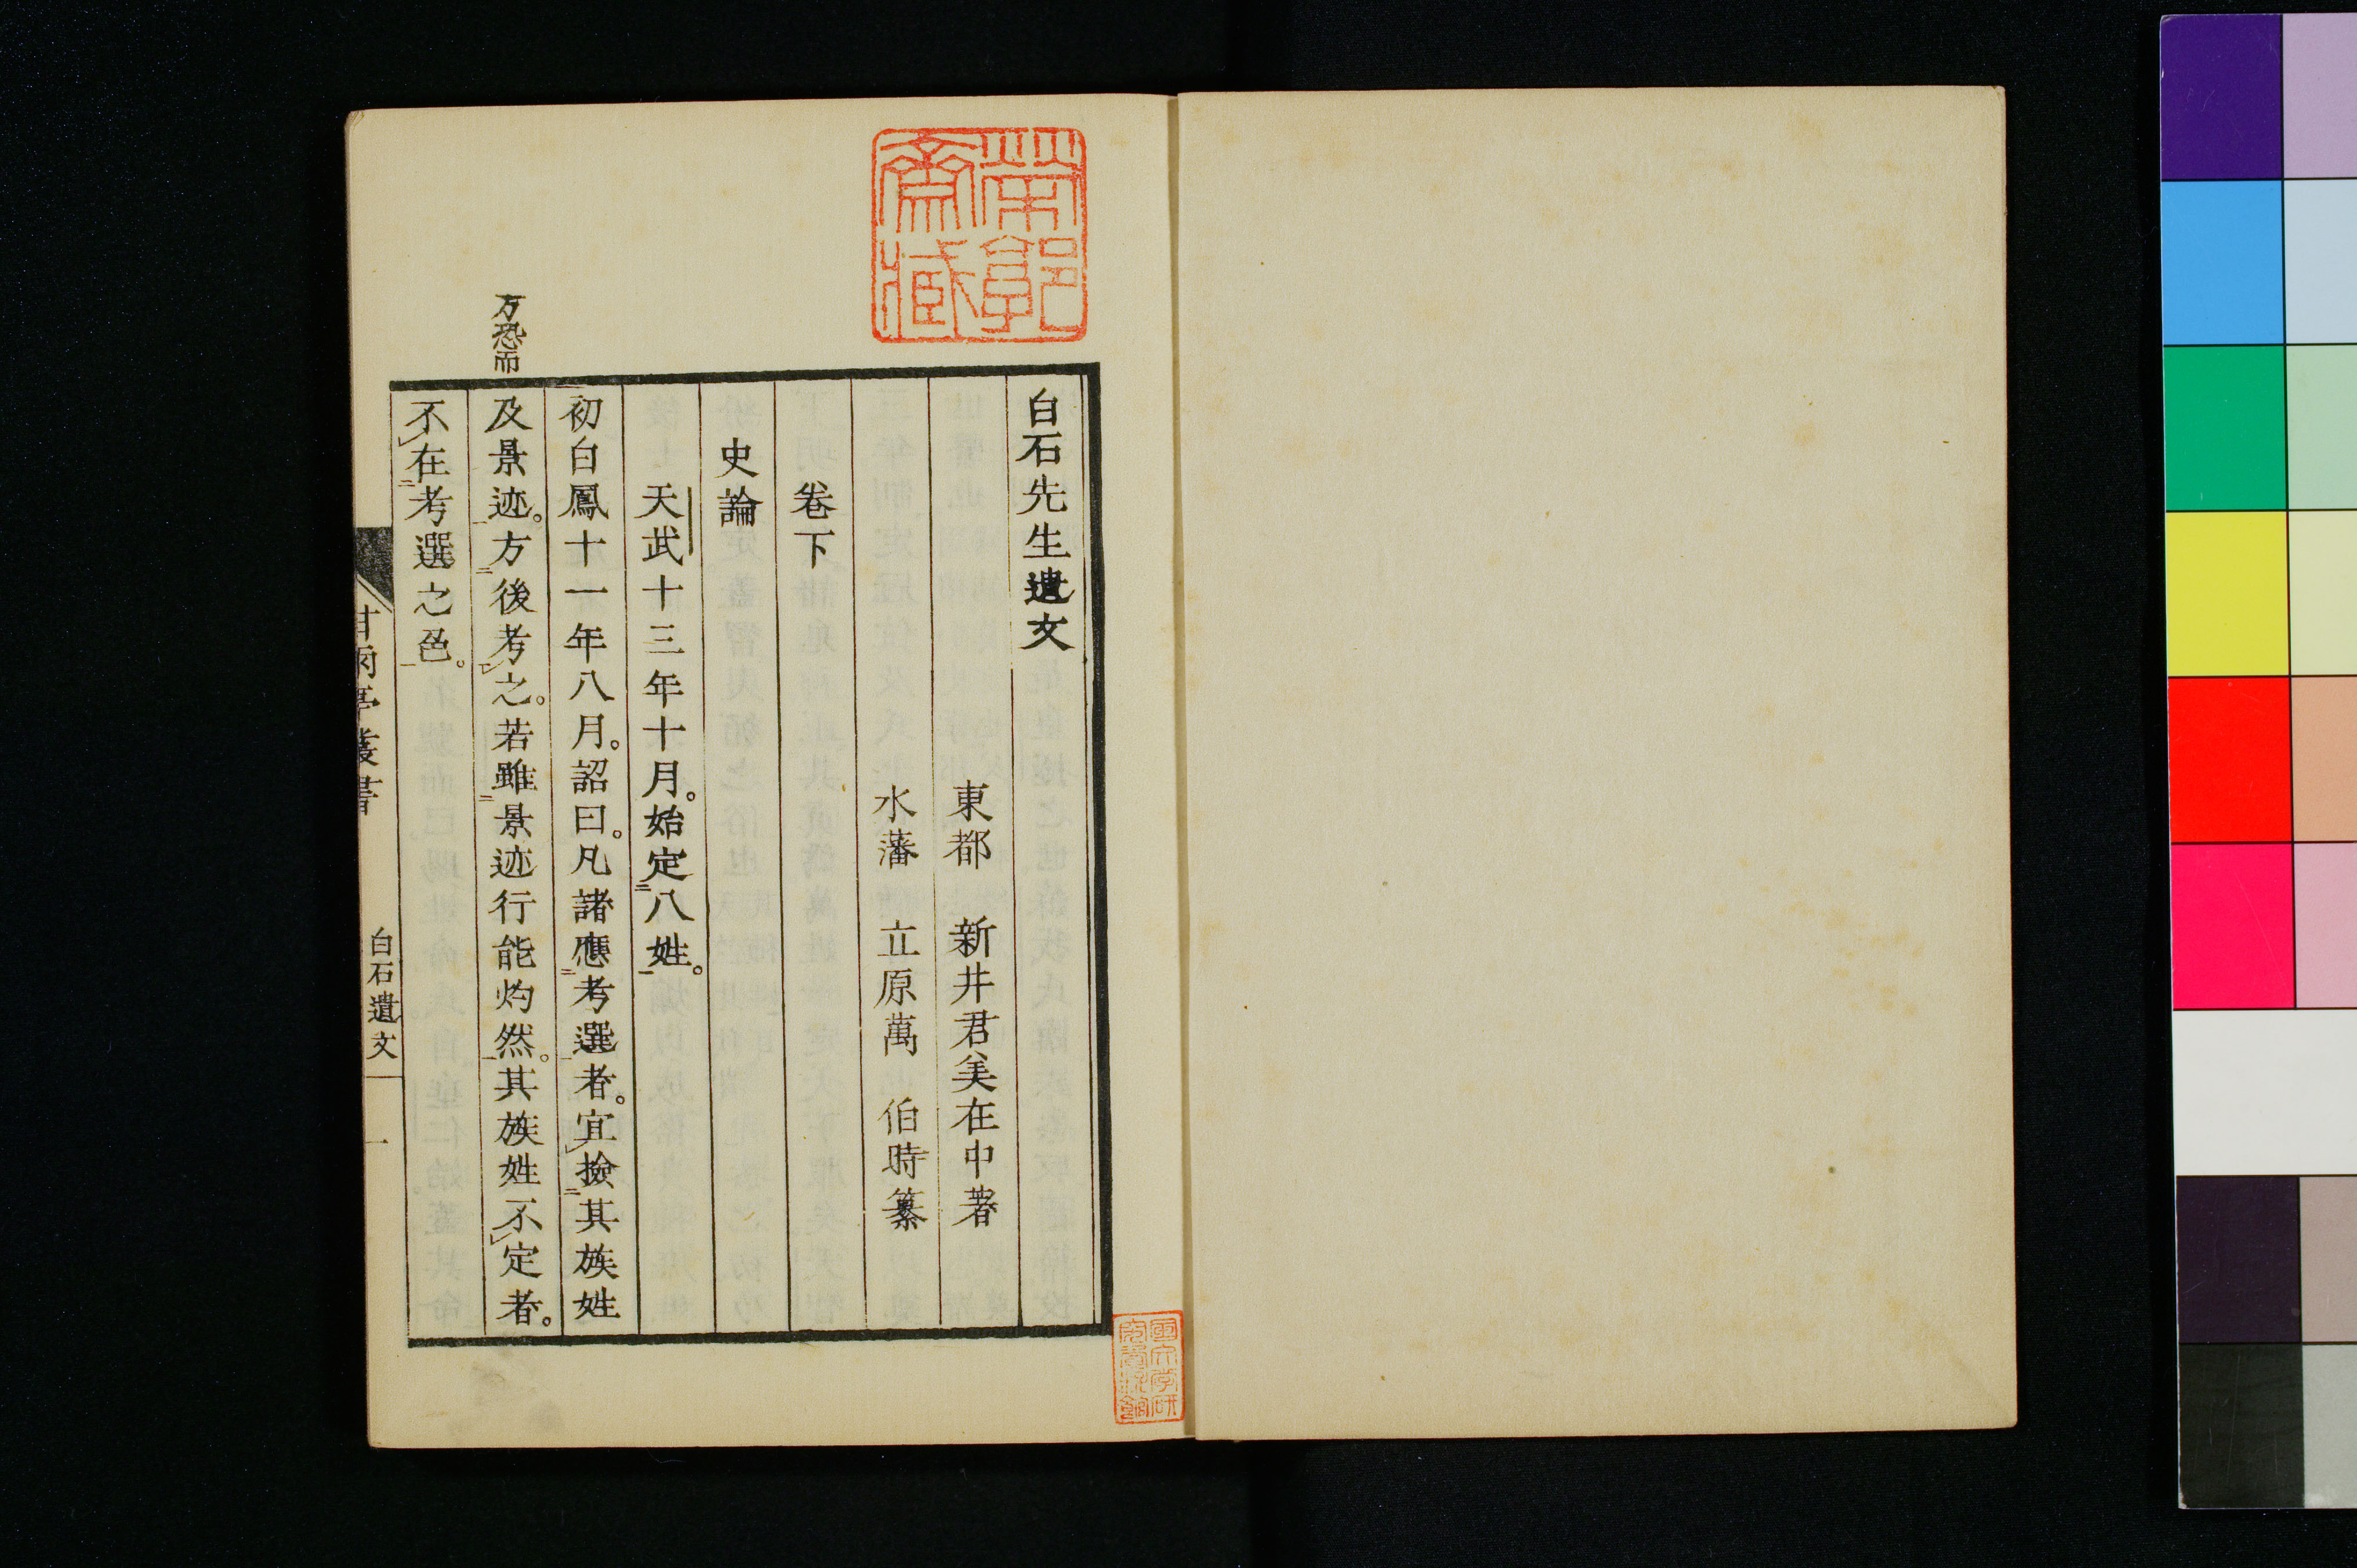 白石先生遺文
東都　新井君美在中著
水藩　立原萬　伯時纂
卷下
史論
天武十三年十月。始定八姓。
初白鳳十一年八月。詔曰。凡諸應考選者。宜撿其族姓
方恐而
及景迹。方後考之。若雖景迹行能灼然。其族姓不定者。
不在考選之色。
甘雨亭叢書
白石遺文
一